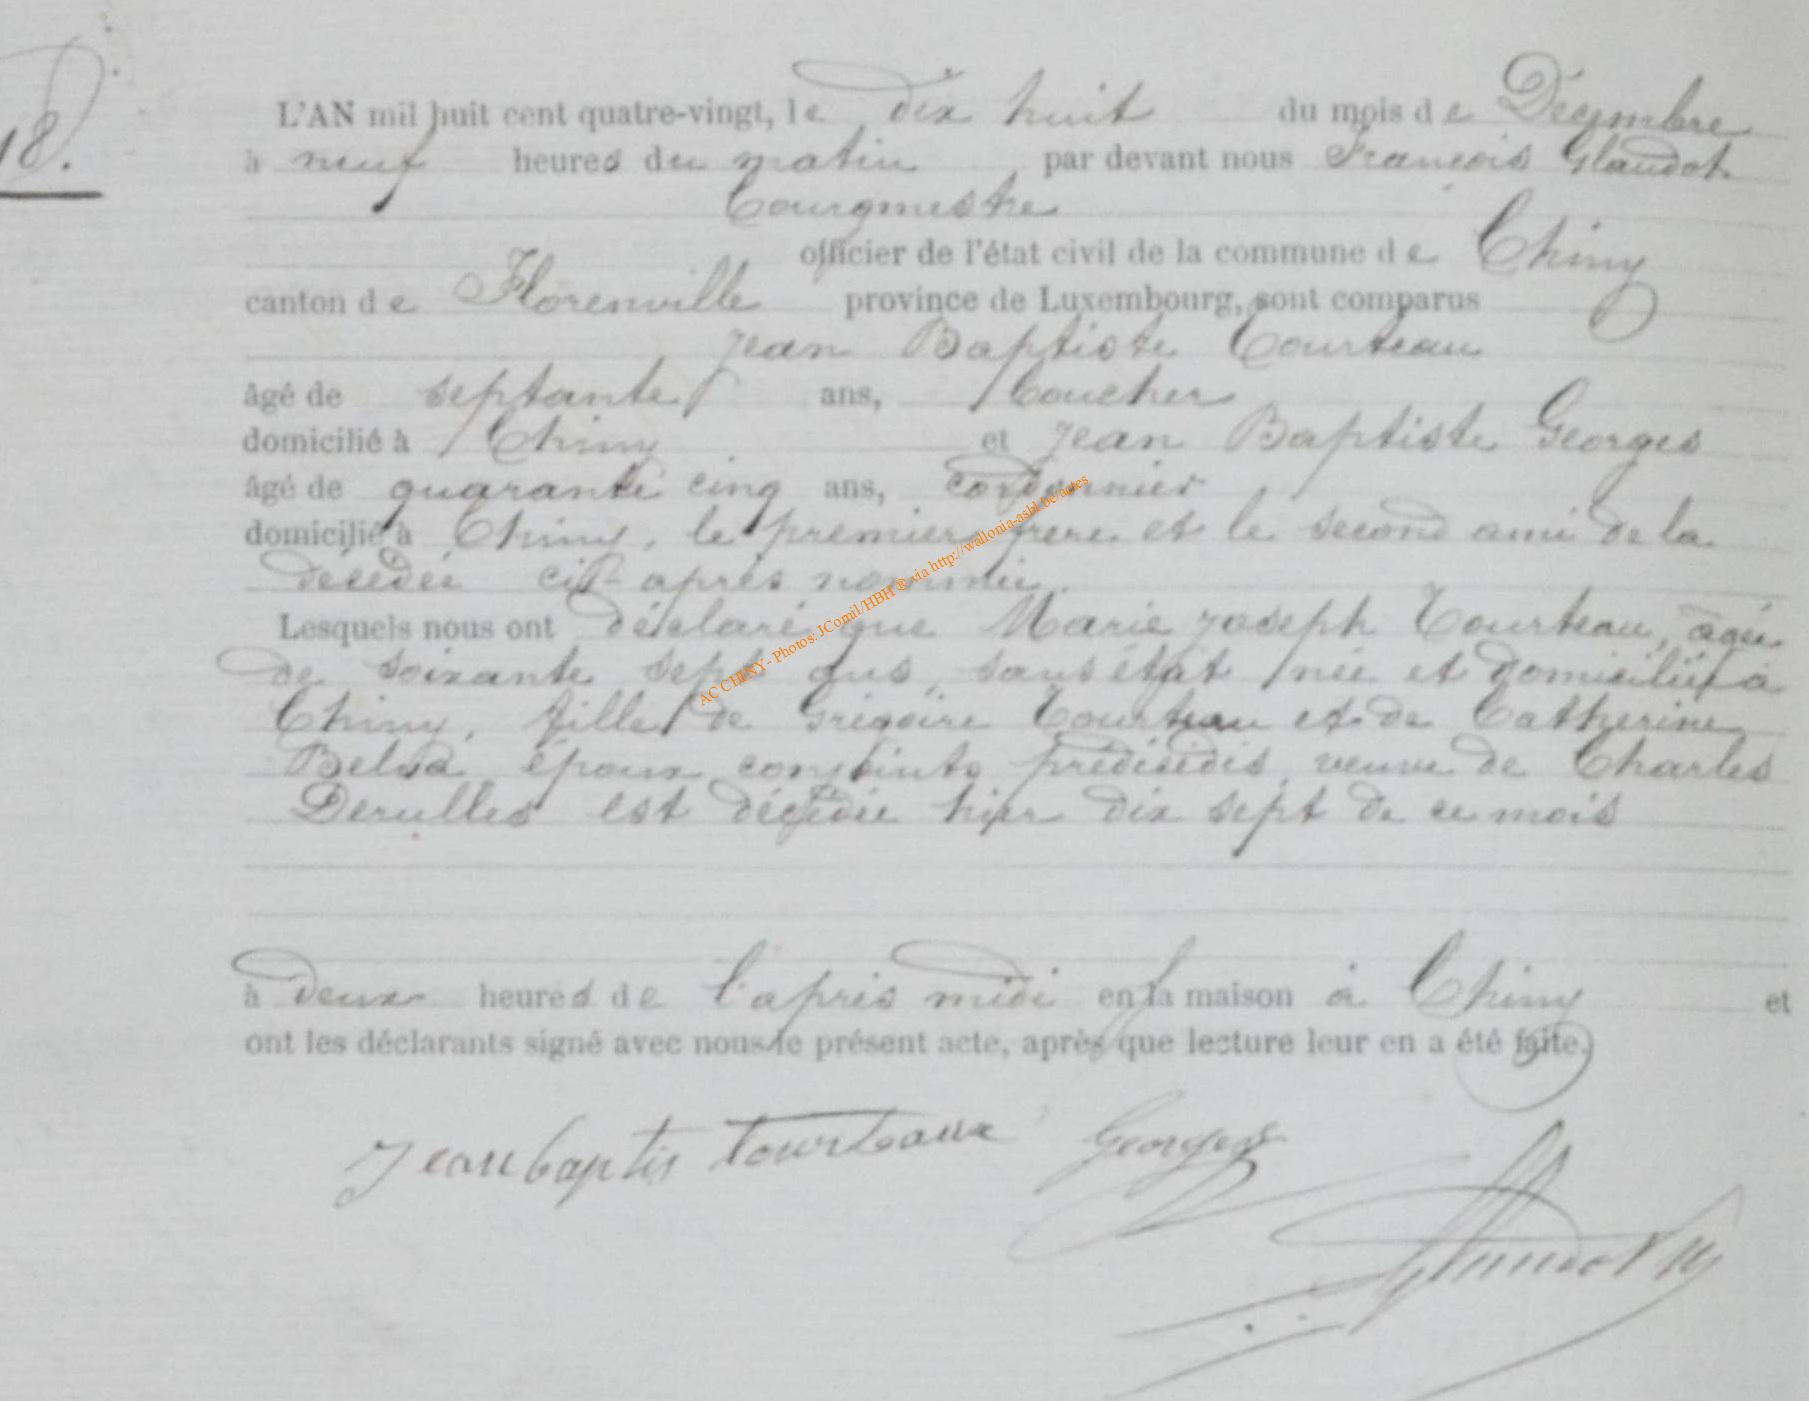 18.
L'AN mil huit cent quatre-vingt, le dix huit du mois de Décembre
à neuf heures du matin par devant nous François Glaudot
bourgmestre
officier de l'état civil de la commune de Chiny
canton de Florenville province de Luxembourg, sont comparus
Jean Baptiste Tourteau
âgé de septante ans,
domicilié à Chiny et Jean Baptiste Georges
âgé de quarante cinq ans, cordonnier
domicilié à Chiny, le premier frère et le second ami de la
décédée ci-après nommée.
Lesquels nous ont déclaré que Marie Joseph Tourteau, âgée
de soixante sept ans, sans état née et domiciliée à
Chiny, fille de Grégoire Tourteau et de Catherine
époux conjoints prédécédés, veuve de Charles
Derulles est décédée hier dix sept de ce mois
à deux heures de l'après midi en la maison à Chiny et
ont les déclarants signé avec nous le présent acte, après que lecture leur en a été faite.
Jean baptis tourteaux Georges
Glaudot
AC CHINY - Photos: JComil/HBH ® via http://wallonia-asbl.be/actes